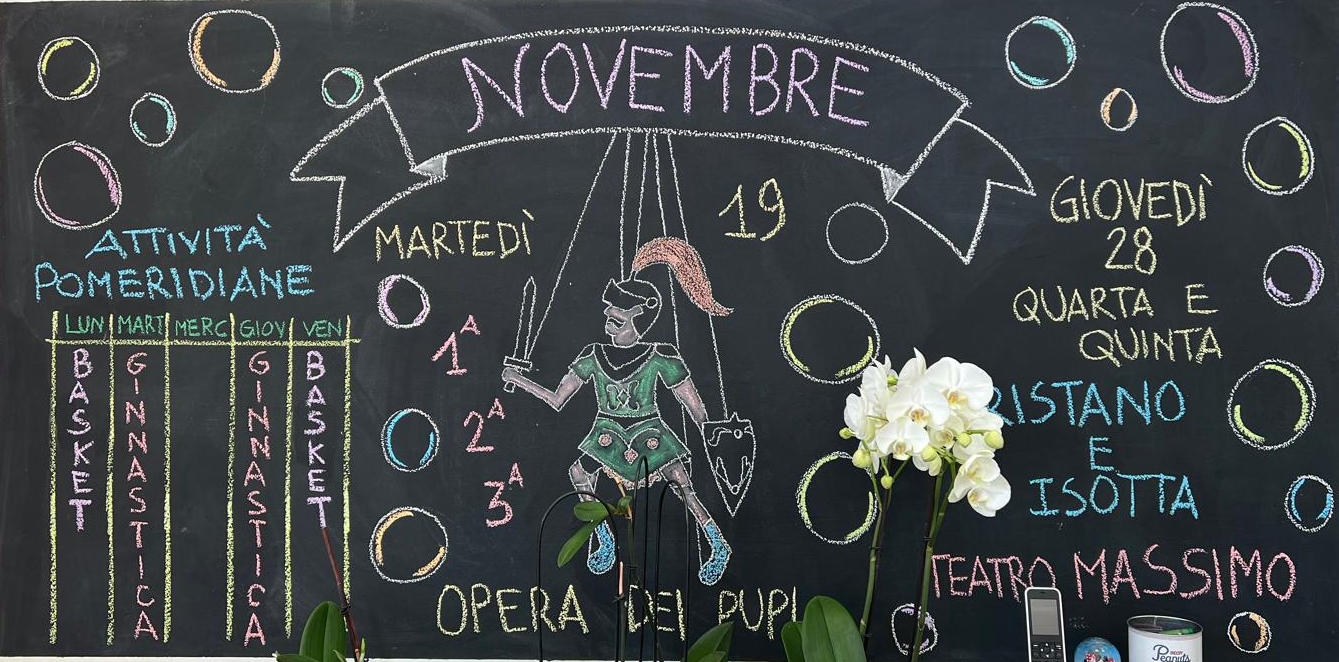 NOVEMBRE
ATTIVITÀ
POMERIDIANE
LUN MART MERC GIOV VEN
BASKET
GINNASTICA
GINNASTICA
BASKET
MARTEDÌ 19
1ª
2ª
3ª
OPERA DEI PUPI
GIOVEDÌ
28
QUARTA E
QUINTA
RISTANO
E
ISOTTA
TEATRO MASSIMO
Peanuts